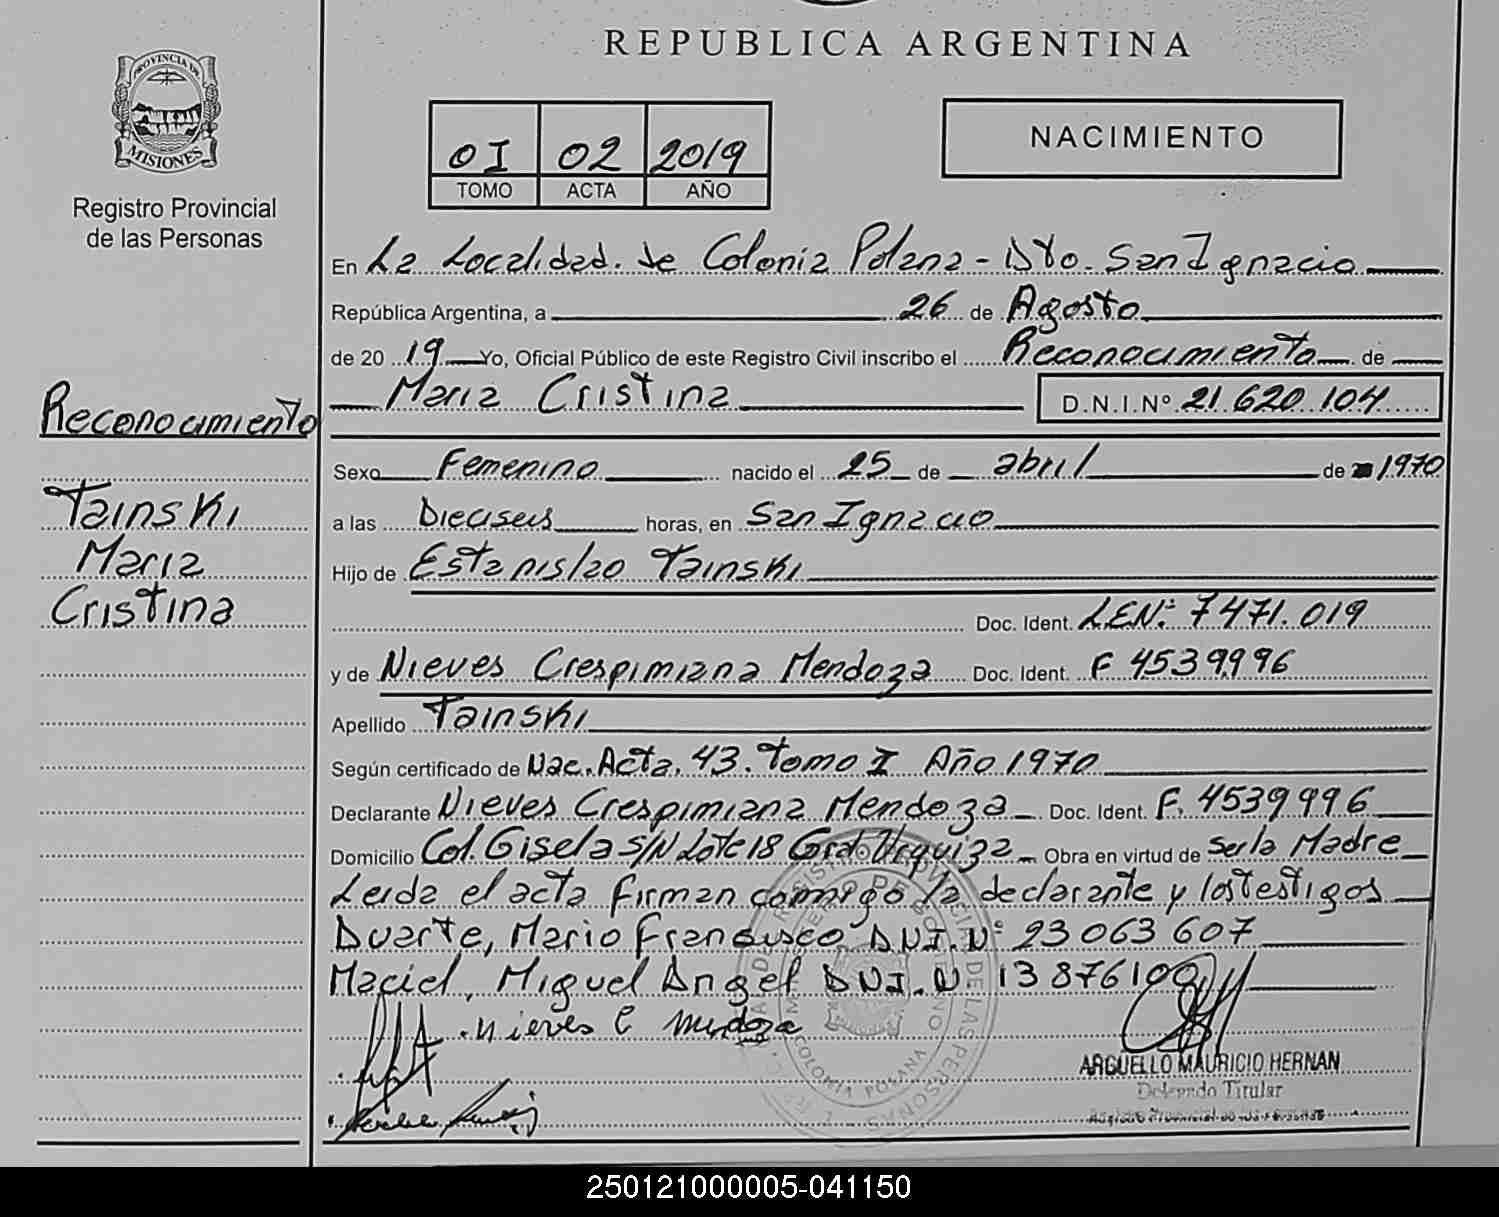 REPUBLICA ARGENTINA
PROVINCIA DE
MISIONES
Registro Provincial
de las Personas
01 02 2019
TOMO ACTA AÑO
NACIMIENTO
En La Localidad de Colonia Polana - Dto. San Ignacio
República Argentina, a 26 de Agosto
de 2019 Yo, Oficial Público de este Registro Civil inscribo el Reconocimiento de
Maria Cristina D.N.I.Nº 21.620.104
Reconocimiento
Tainski
Maria
Cristina
Sexo Femenino nacido el 25 de abril de 1970
a las Dieciseis horas, en San Ignacio
Hijo de Estanislao Tainski
Doc. Ident. L.E.Nº 7471.019
y de Nieves Crespimiana Mendoza Doc. Ident. F 4539996
Apellido Tainski
Según certificado de Nac. Acta. 43. Tomo I Año 1970
Declarante Nieves Crespimiana Mendoza Doc. Ident. F. 4539996
Domicilio Col. Gisela S/N Lote 18 Gral Urquiza Obra en virtud de Ser la Madre
Leida el acta firman conmigo la declarante y los testigos
Duarte, Mario Francisco DNI. Nº 23063607
Maciel, Miguel Angel DNI. N. 13876100
Nieves C Mendoza
COLONIA POLANA
ARGUELLO MAURICIO HERNAN
Delegado Titular
250121000005-041150